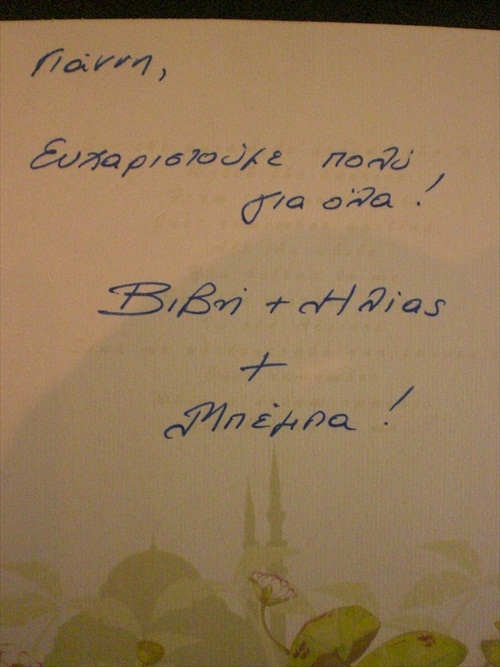 Γιάννη,
Ευχαριστούμε πολύ
για όλα!
Βιβή + Ηλίας
+
Μπέμπα!